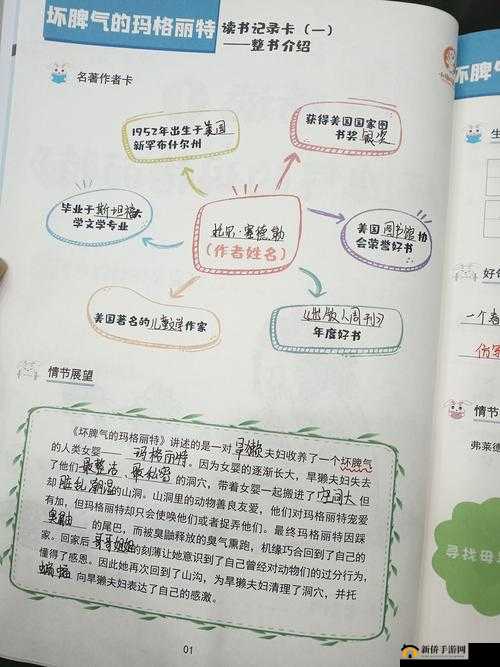 坏脾气的玛格丽特
读书记录卡（一）
——整书介绍
坏脾
名著作者卡
1952年出生于美国
新罕布什尔州
获得美国国家图
书奖银奖
毕业于斯坦福大
学文学专业
托尔·赛德勒
（作者姓名）
美国图书馆协
会荣誉好书
美国著名的儿童文学作家
《出版人周刊》
年度好书
情节展望
《坏脾气的玛格丽特》讲述的是一对旱獭夫妇收养了一个坏脾气
的人类女婴——玛格丽特。因为女婴的逐渐长大，旱獭夫妇失去
了他们最整洁、最私密的洞穴，带着女婴一起搬进了空间大但
却脏乱潮湿的山洞。山洞里的动物善良友爱，他们对玛格丽特宠爱
有加，但玛格丽特却只会使唤他们或者捉弄他们。最终玛格丽特因踩
臭鼬的尾巴，而被臭鼬释放的臭气熏跑，机缘巧合回到了自己的
家。回家后哥哥姐姐的刻薄让她意识到了自己曾经对动物们的过分行为，
懂得了感恩。因此她再次回到了山沟，为旱獭夫妇清理了洞穴，并托
蝙蝠向旱獭夫妇表达了自己的感激。
01
生
好句
一个春
仿写
情
弗莱德
寻找母
新侨手游网